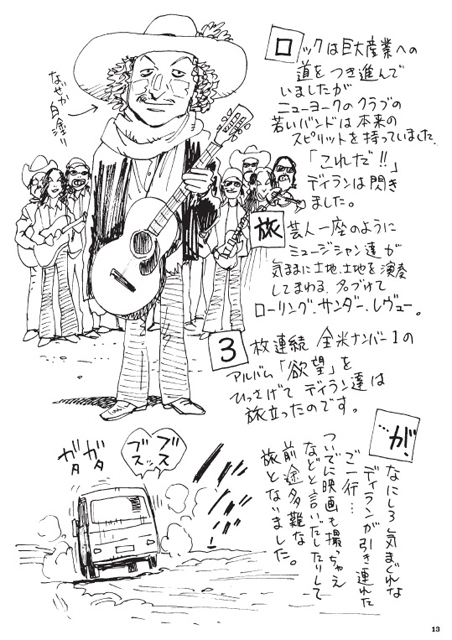 ロックは巨大産業への
道をつき進んで
いましたが
ニューヨークのクラブの
若いバンドは本来の
スピリットを持っていました。
「これだ!!」
ディランは閃き
ました。
なぜか
白塗り
旅芸人一座のように
ミュージシャン達が
気ままに土地、土地を演奏
してまわる。名づけて
ローリング・サンダー・レヴュー。
3枚連続全米ナンバー1の
アルバム「欲望」を
ひっさげてディラン達は
旅立ったのです。
…が!
なにしろ気まぐれな
ディランが引き連れた
ご一行…
ついでに映画も撮っちゃえ
などと言いだしたりして
前途多難な
旅となりました。
ブスブス
ブスッ
ガタガタ
13